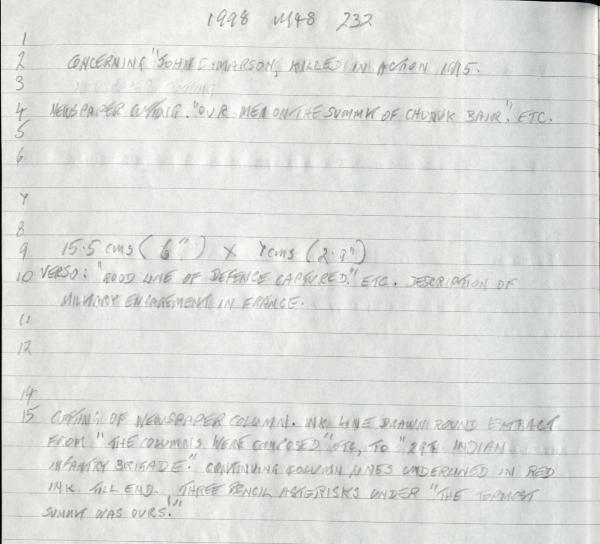 1998 M48 232
1
2 CONCERNING "JOHN C. MARSON, KILLED IN ACTION 1915.
3
4 NEWSPAPER CUTTING. "OUR MEN ON THE SUMMIT OF CHUNUK BAIR". ETC.
5
6
7
8
9 15.5 cms (6") X 7cms (2.9")
10 VERSO: "GOOD LINE OF DEFENCE CAPTURED." ETC. DESCRIPTION OF
MILITARY ENGAGEMENT IN FRANCE.
11
12
14
15 CUTTING OF NEWSPAPER COLUMN. INK LINE DRAWN ROUND EXTRACT
FROM "THE COLUMNS WERE COMPOSED" ETC, TO "29TH INDIAN
INFANTRY BRIGADE." CONTINUING COLUMN LINES UNDERLINED IN RED
INK TILL END. THREE PENCIL ASTERISKS UNDER "THE TOPMOST
SUMMIT WAS OURS."